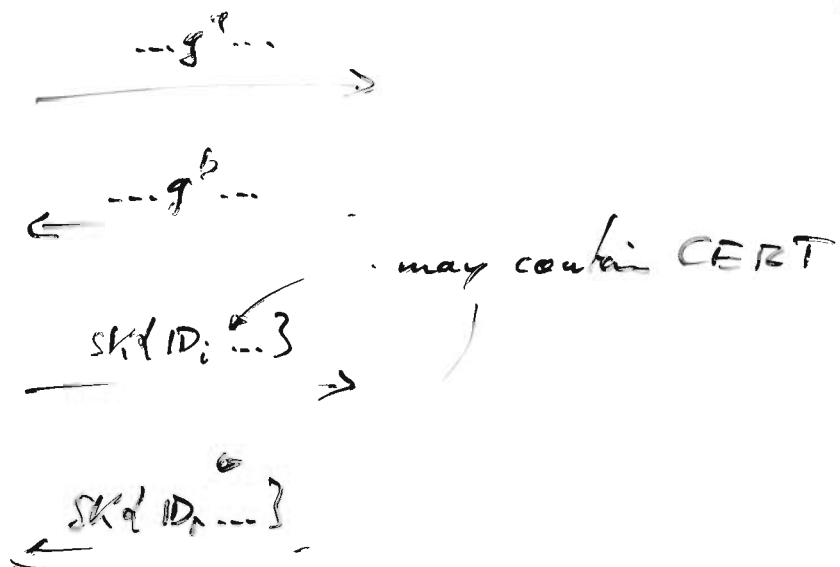 ...g^a...
...g^b...
may contain CERT
SK{ID_i ...}
SK{ID_r ...}